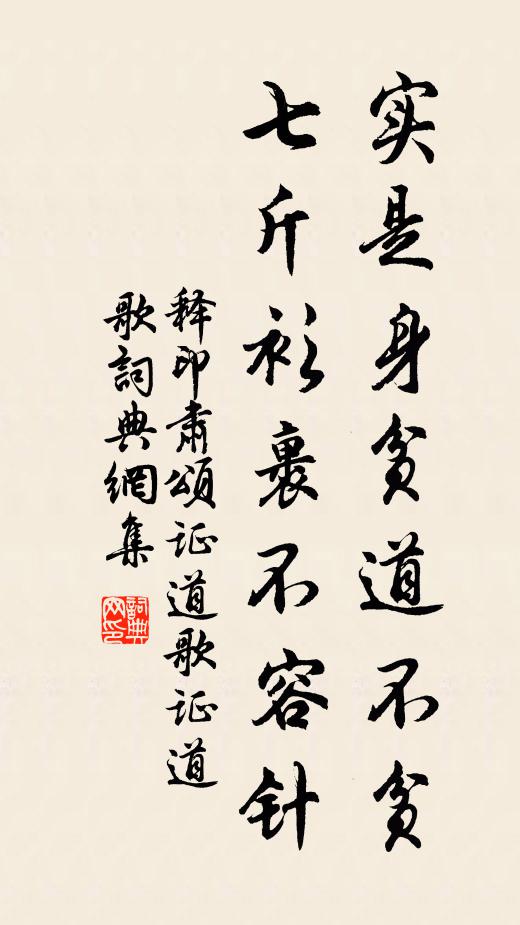 实是身贫道不贫
七斤衫裹不容针
释印肃颂证道歌证道
歌词典網集
詞典
网印